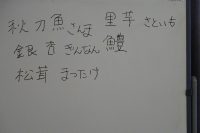 秋刀魚 さんま 里芋 さといも
銀杏 ぎんなん 鱧
松茸 まつたけ